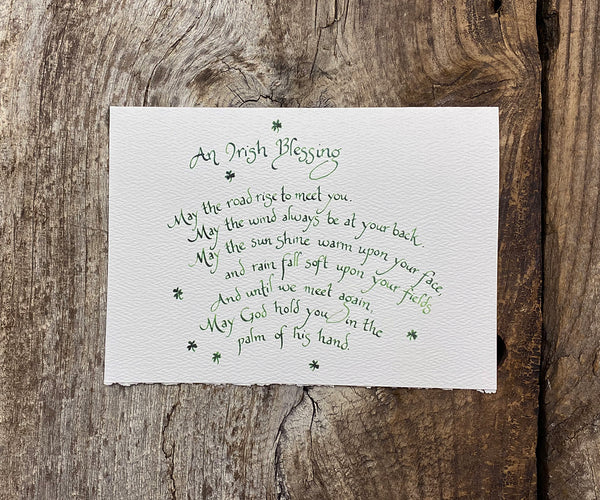 An Irish Blessing
May the road rise to meet you.
May the wind always be at your back.
May the sun shine warm upon your face,
and rain fall soft upon your fields
And until we meet again,
May God hold you in the
palm of his hand.